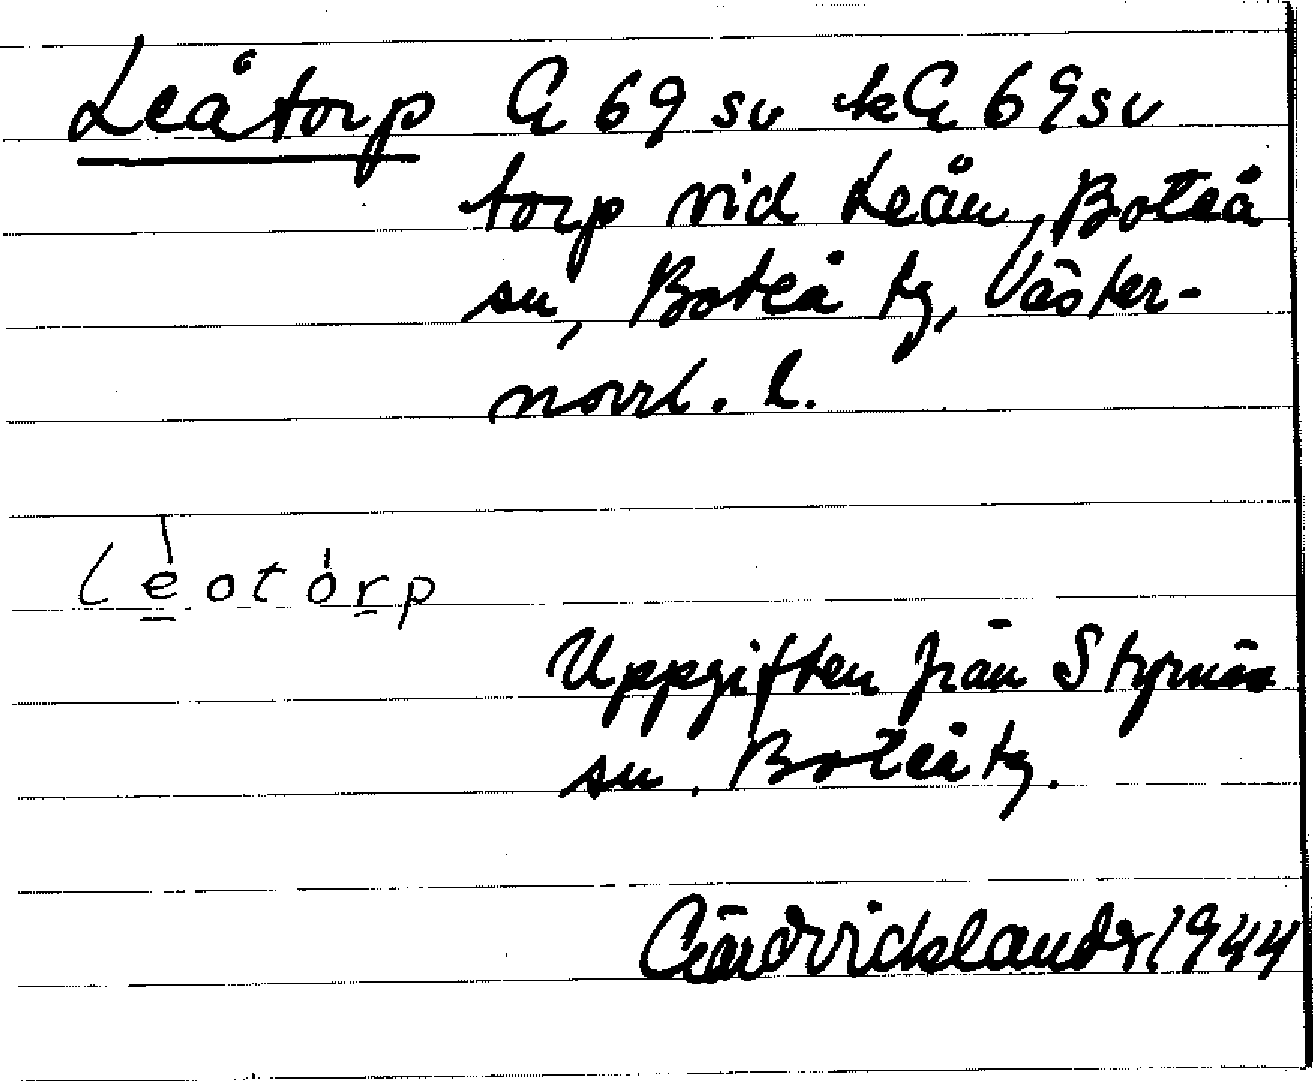 Leåtorp G 69 sv ekG 69 sv
torp vid Leån, Boteå
sn, Boteå tg, Väster-
norrl. l.
Leotorp
Uppgiften från Styrnäs
sn. Boteå tg.
1944